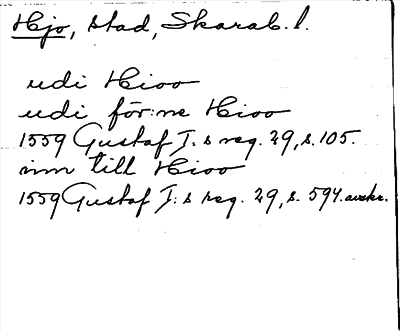 Hjo, stad, Skarab. l.
udi Hioo
udi för:ne Hioo
1559 Gustaf I:s reg. 29, s. 105.
inn till Hioo
1559 Gustaf I:s reg. 29, s. 594. avskr.